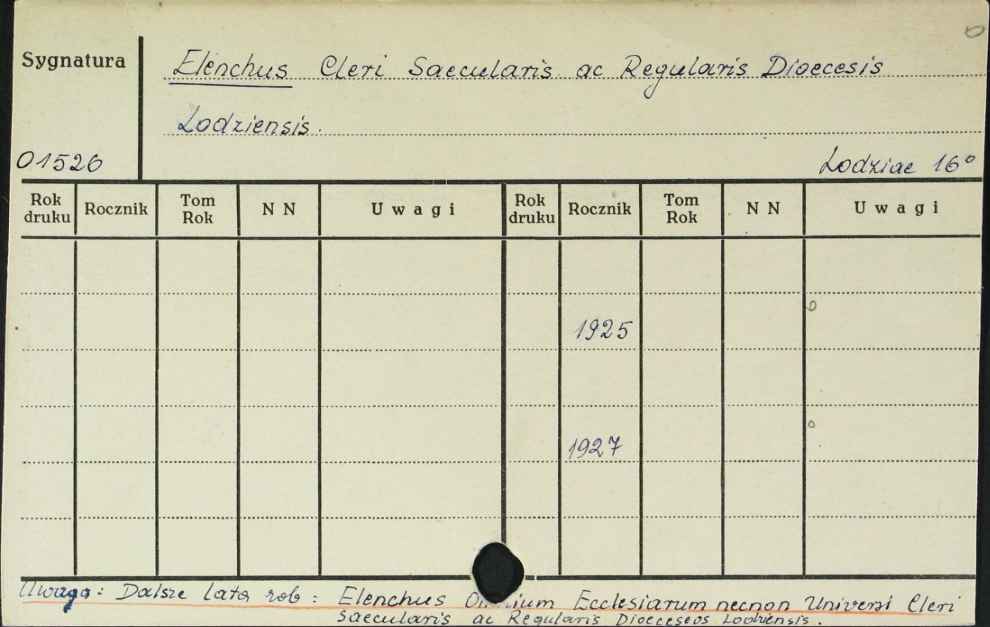 Sygnatura
Elenchus Cleri Saecularis ac Regularis Dioecesis
Lodziensis.
01526
Lodziae 16°
Rok druku Rocznik Tom Rok N N Uwagi Rok druku Rocznik Tom Rok N N Uwagi
1925
1927
Uwaga: Dalsze lata zob: Elenchus Omnium Ecclesiarum necnon Universi Cleri
Saecularis ac Regularis Dioeceseos Lodziensis.